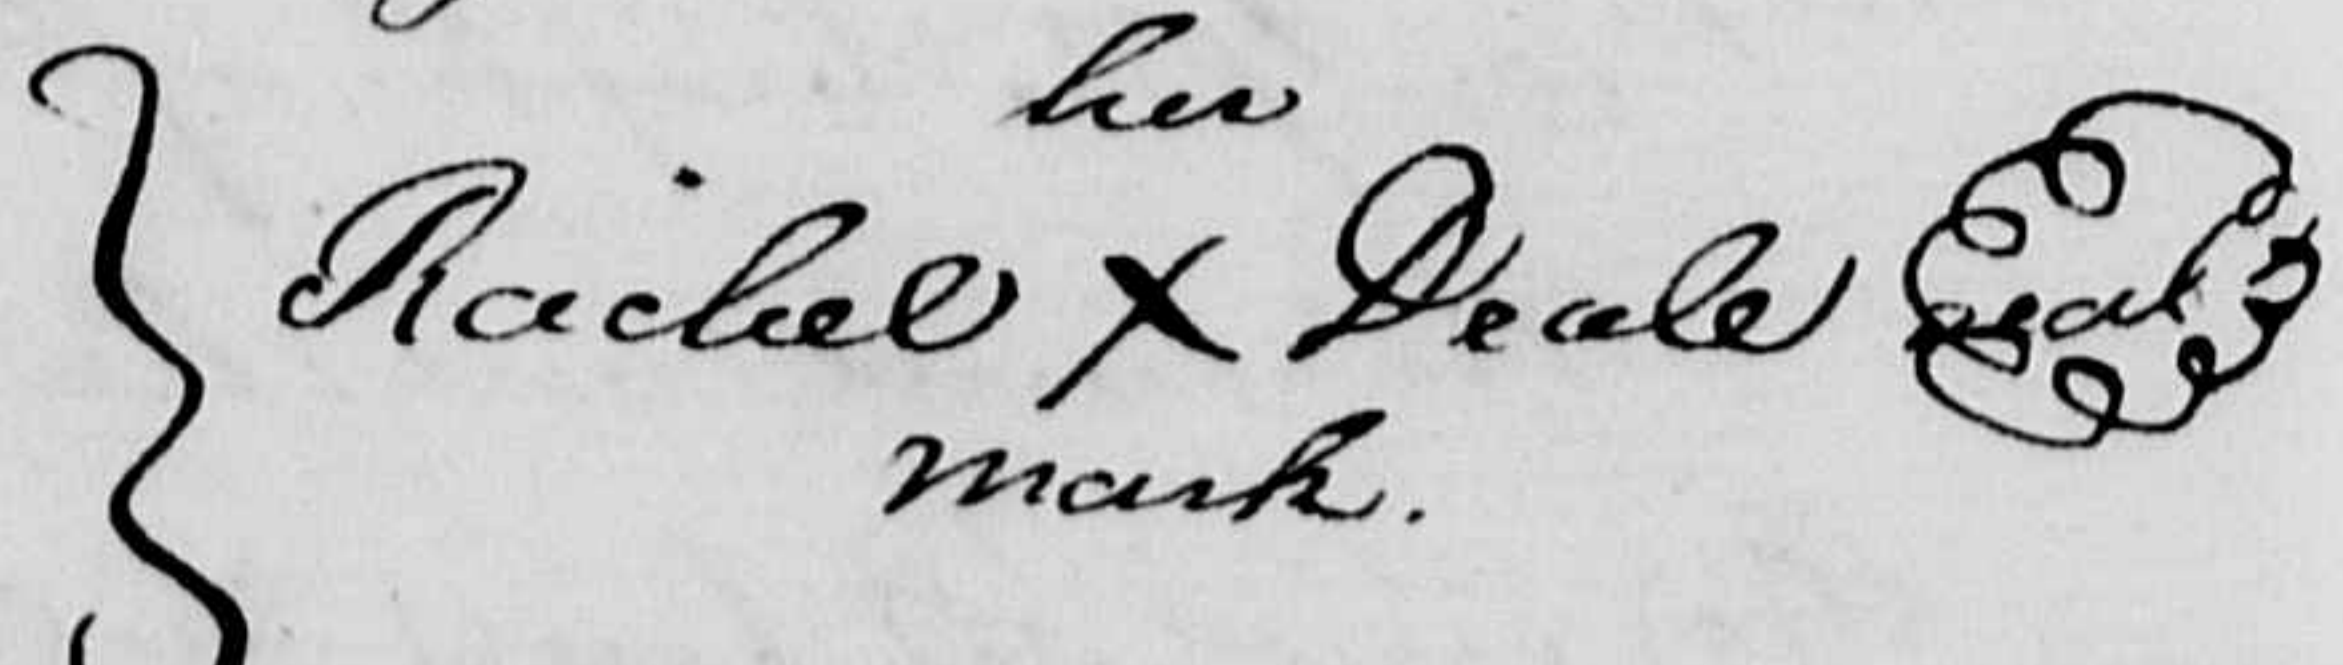 her
Rachel X Deale seal
mark.